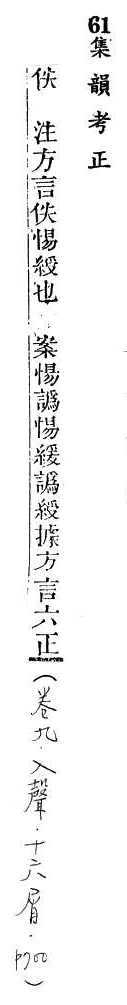 61集韻考正
佚 注方言佚惕緩也 案惕譌惕緩譌綬據方言六正(卷九·入聲·十六屑·p700)